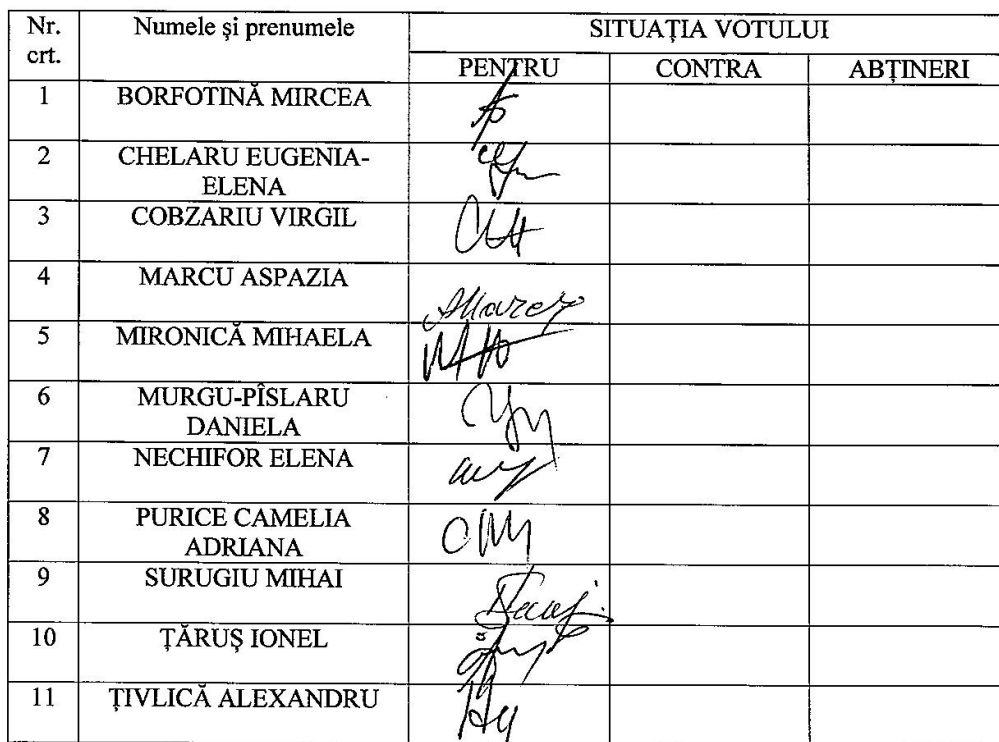 Nr. crt.
Numele şi prenumele
SITUAŢIA VOTULUI
PENTRU
CONTRA
ABŢINERI
1
BORFOTINĂ MIRCEA
2
CHELARU EUGENIA-
ELENA
3
COBZARIU VIRGIL
4
MARCU ASPAZIA
5
MIRONICĂ MIHAELA
6
MURGU-PÎSLARU
DANIELA
7
NECHIFOR ELENA
8
PURICE CAMELIA
ADRIANA
9
SURUGIU MIHAI
10
ŢĂRUŞ IONEL
11
ŢIVLICĂ ALEXANDRU